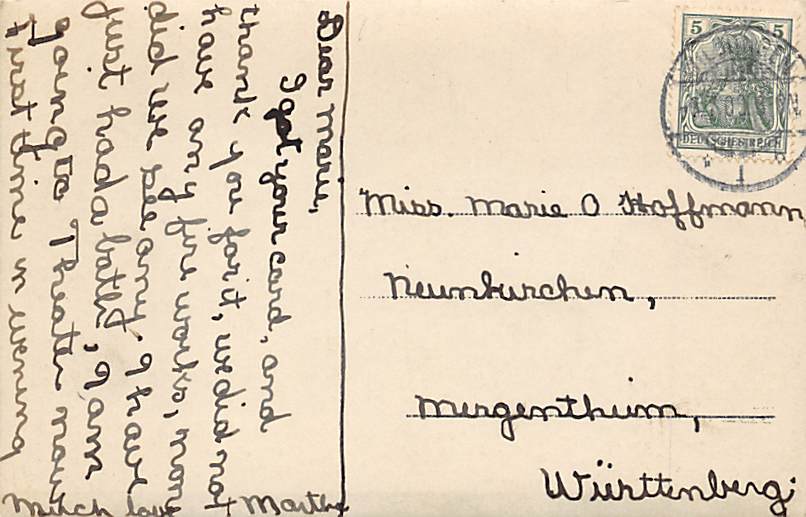 Dear Marie,
I got your card, and
thank you for it, we did not
have any fire works, none
did we see any. I have
just had a bath, I am
going to Theater now
first time in evening
Much love Martha
5 5
DEUTSCHES REICH
Miss. Marie O Hoffmann,
Neunkirchen,
Mergentheim,
Württenberg;